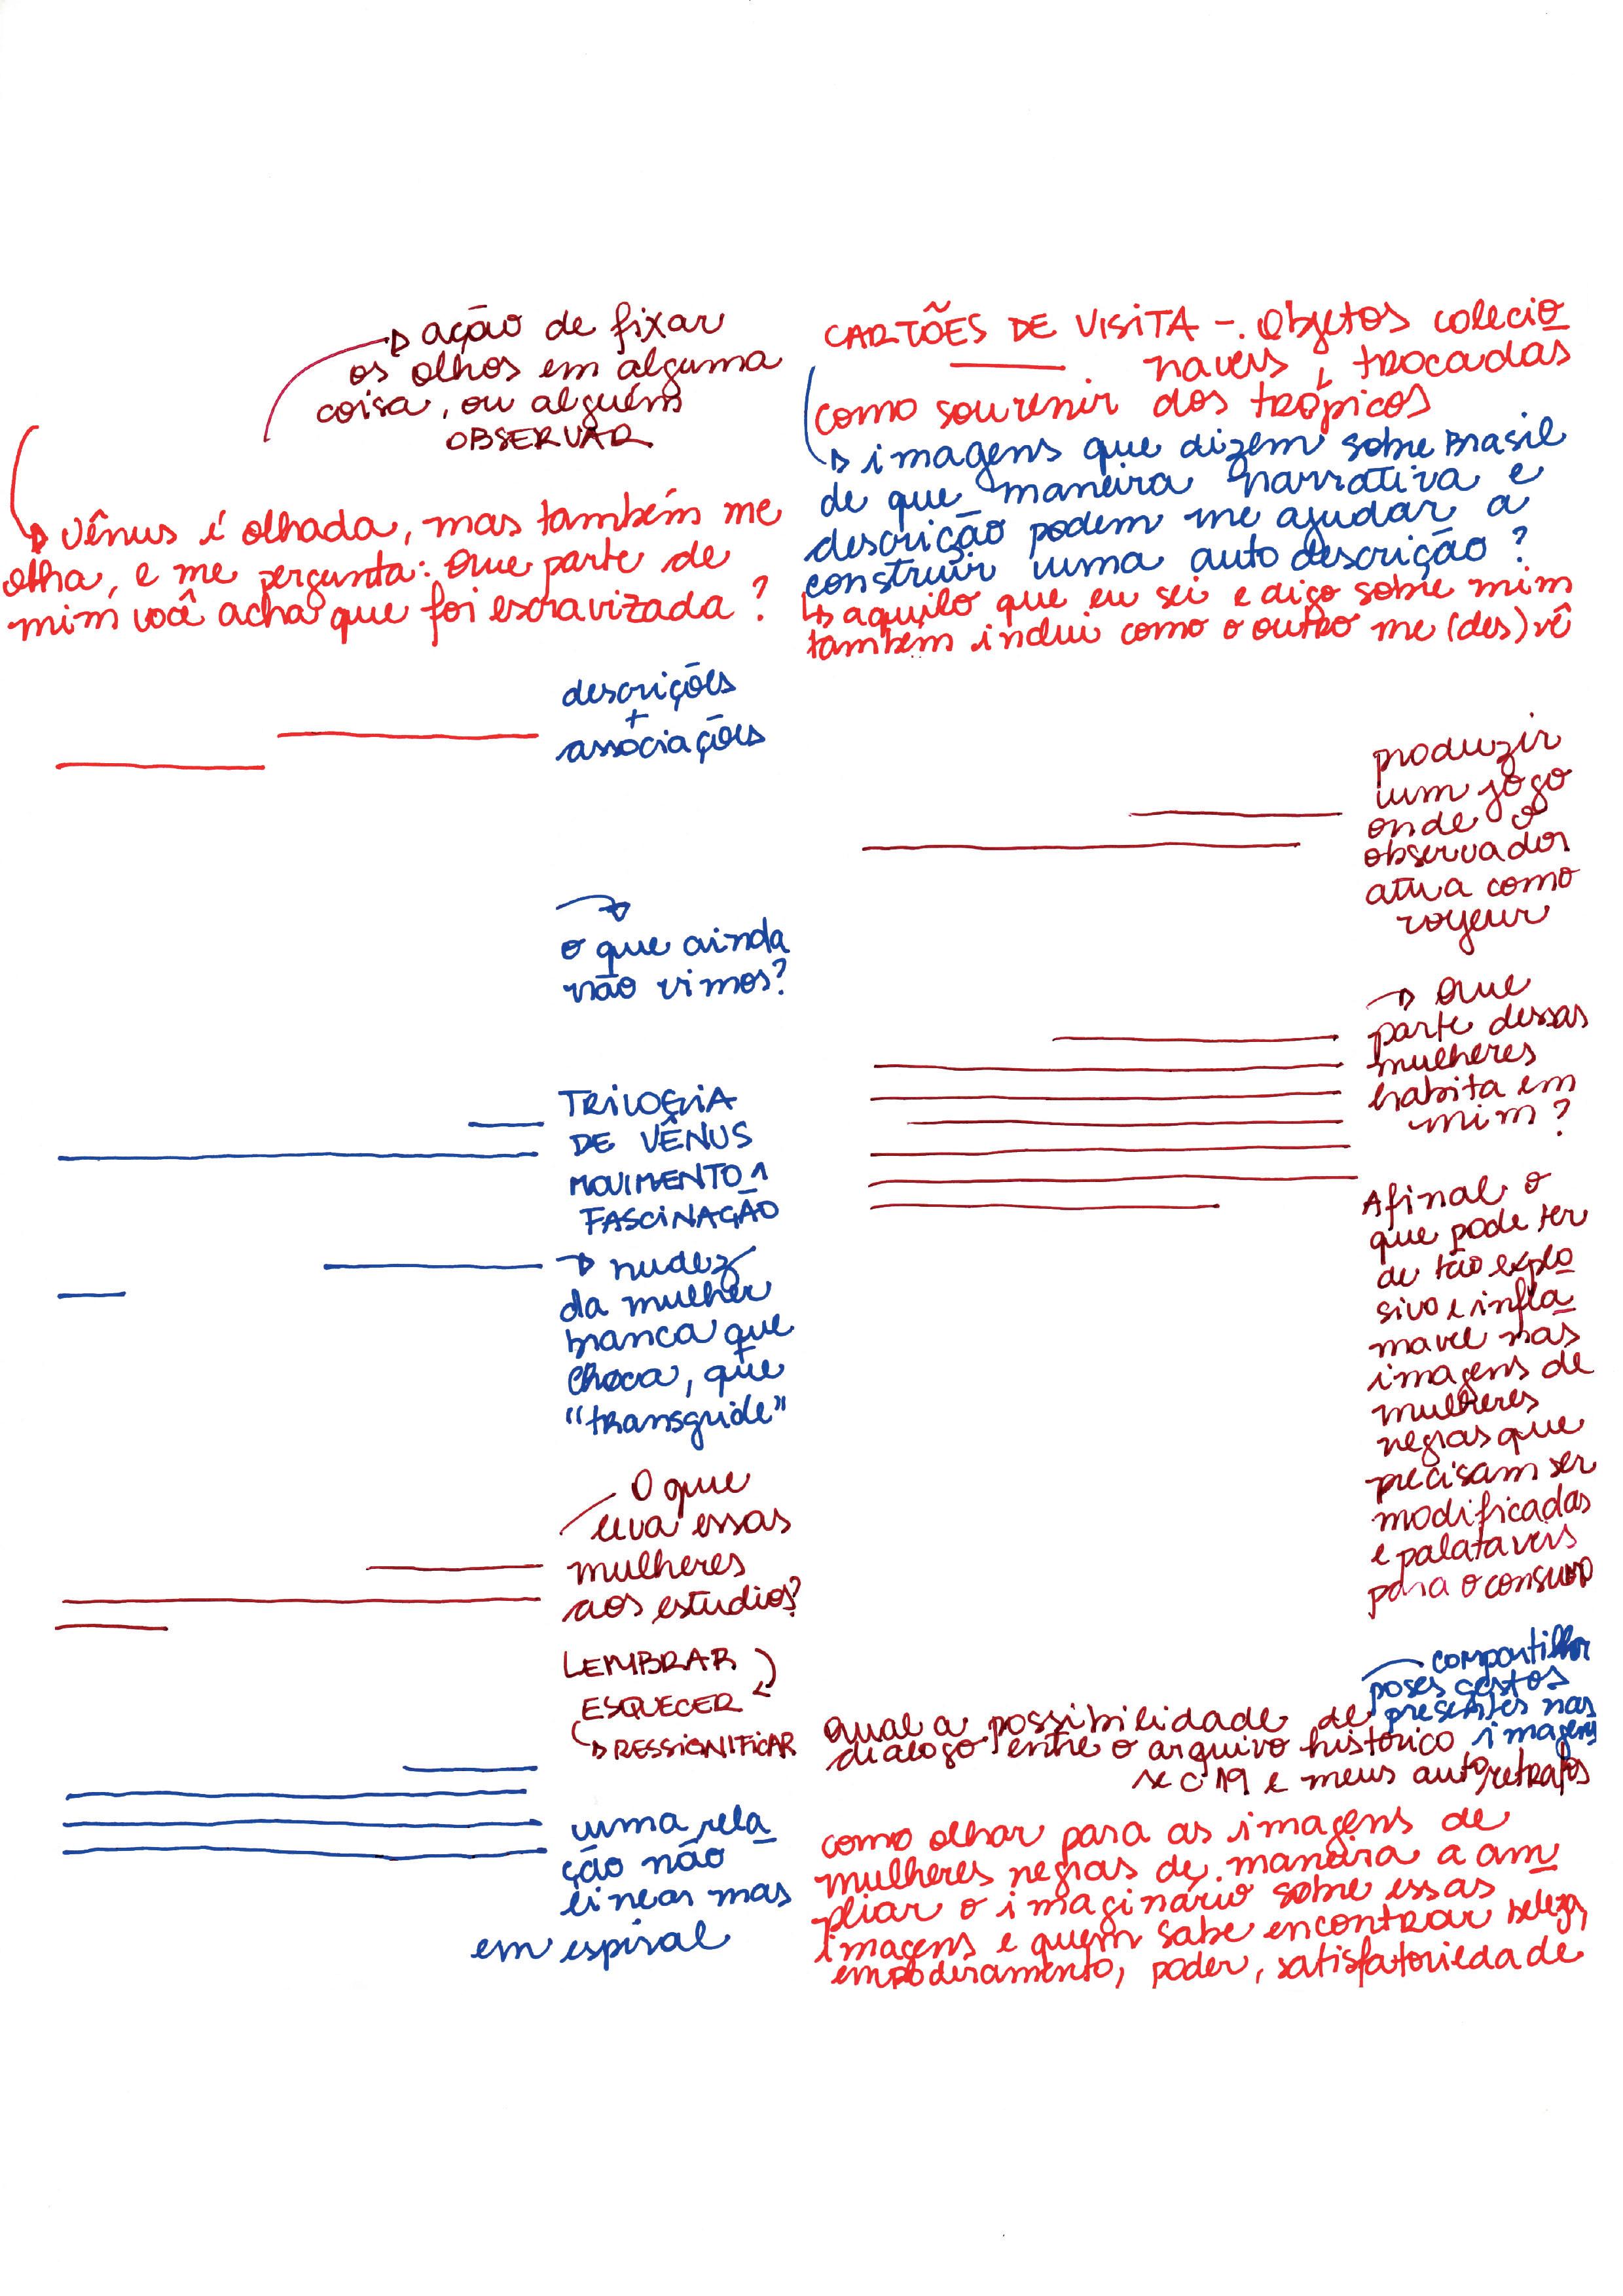 ação de fixar
os olhos em alguma
coisa, ou alguém
OBSERVAR
vênus é olhada, mas também me
olha, e me pergunta: Que parte de
mim você acha que foi escravizada?
descrições
+
associações
o que ainda
não vimos?
TRILOGIA
DE VÊNUS
MOVIMENTO 1
FASCINAÇÃO
nudez
da mulher
branca que
choca, que
"transgride"
O que
leva essas
mulheres
aos estudios?
LEMBRAR
ESQUECER
RESSIGNIFICAR
uma rela
ção não
linear mas
em espiral
CARTÕES DE VISITA -. Objetos colecio
naveis, trocadas
como souvenir dos trópicos
imagens que dizem sobre Brasil
de que maneira narrativa e
descrição podem me ajudar a
construir uma auto descrição?
aquilo que eu sei e digo sobre mim
também inclui como o outro me (des)vê
produzir
um jogo
onde o
observador
atua como
voyeur
Que
parte dessas
mulheres
habita em
mim?
Afinal o
que pode ter
de tão explo
sivo e infla
mavel nas
imagens de
mulheres
negras que
precisam ser
modificadas
e palataveis
para o consumo
compartilhar
poses gestos
presentes nas
imagens
qual a possibilidade de
dialogo entre o arquivo histórico
sec 19 e meus auto, retratos
como olhar para as imagens de
mulheres negras de maneira a am
pliar o imaginário sobre essas
imagens e quem sabe encontrar beleza,
empoderamento, poder, satisfatoriedade